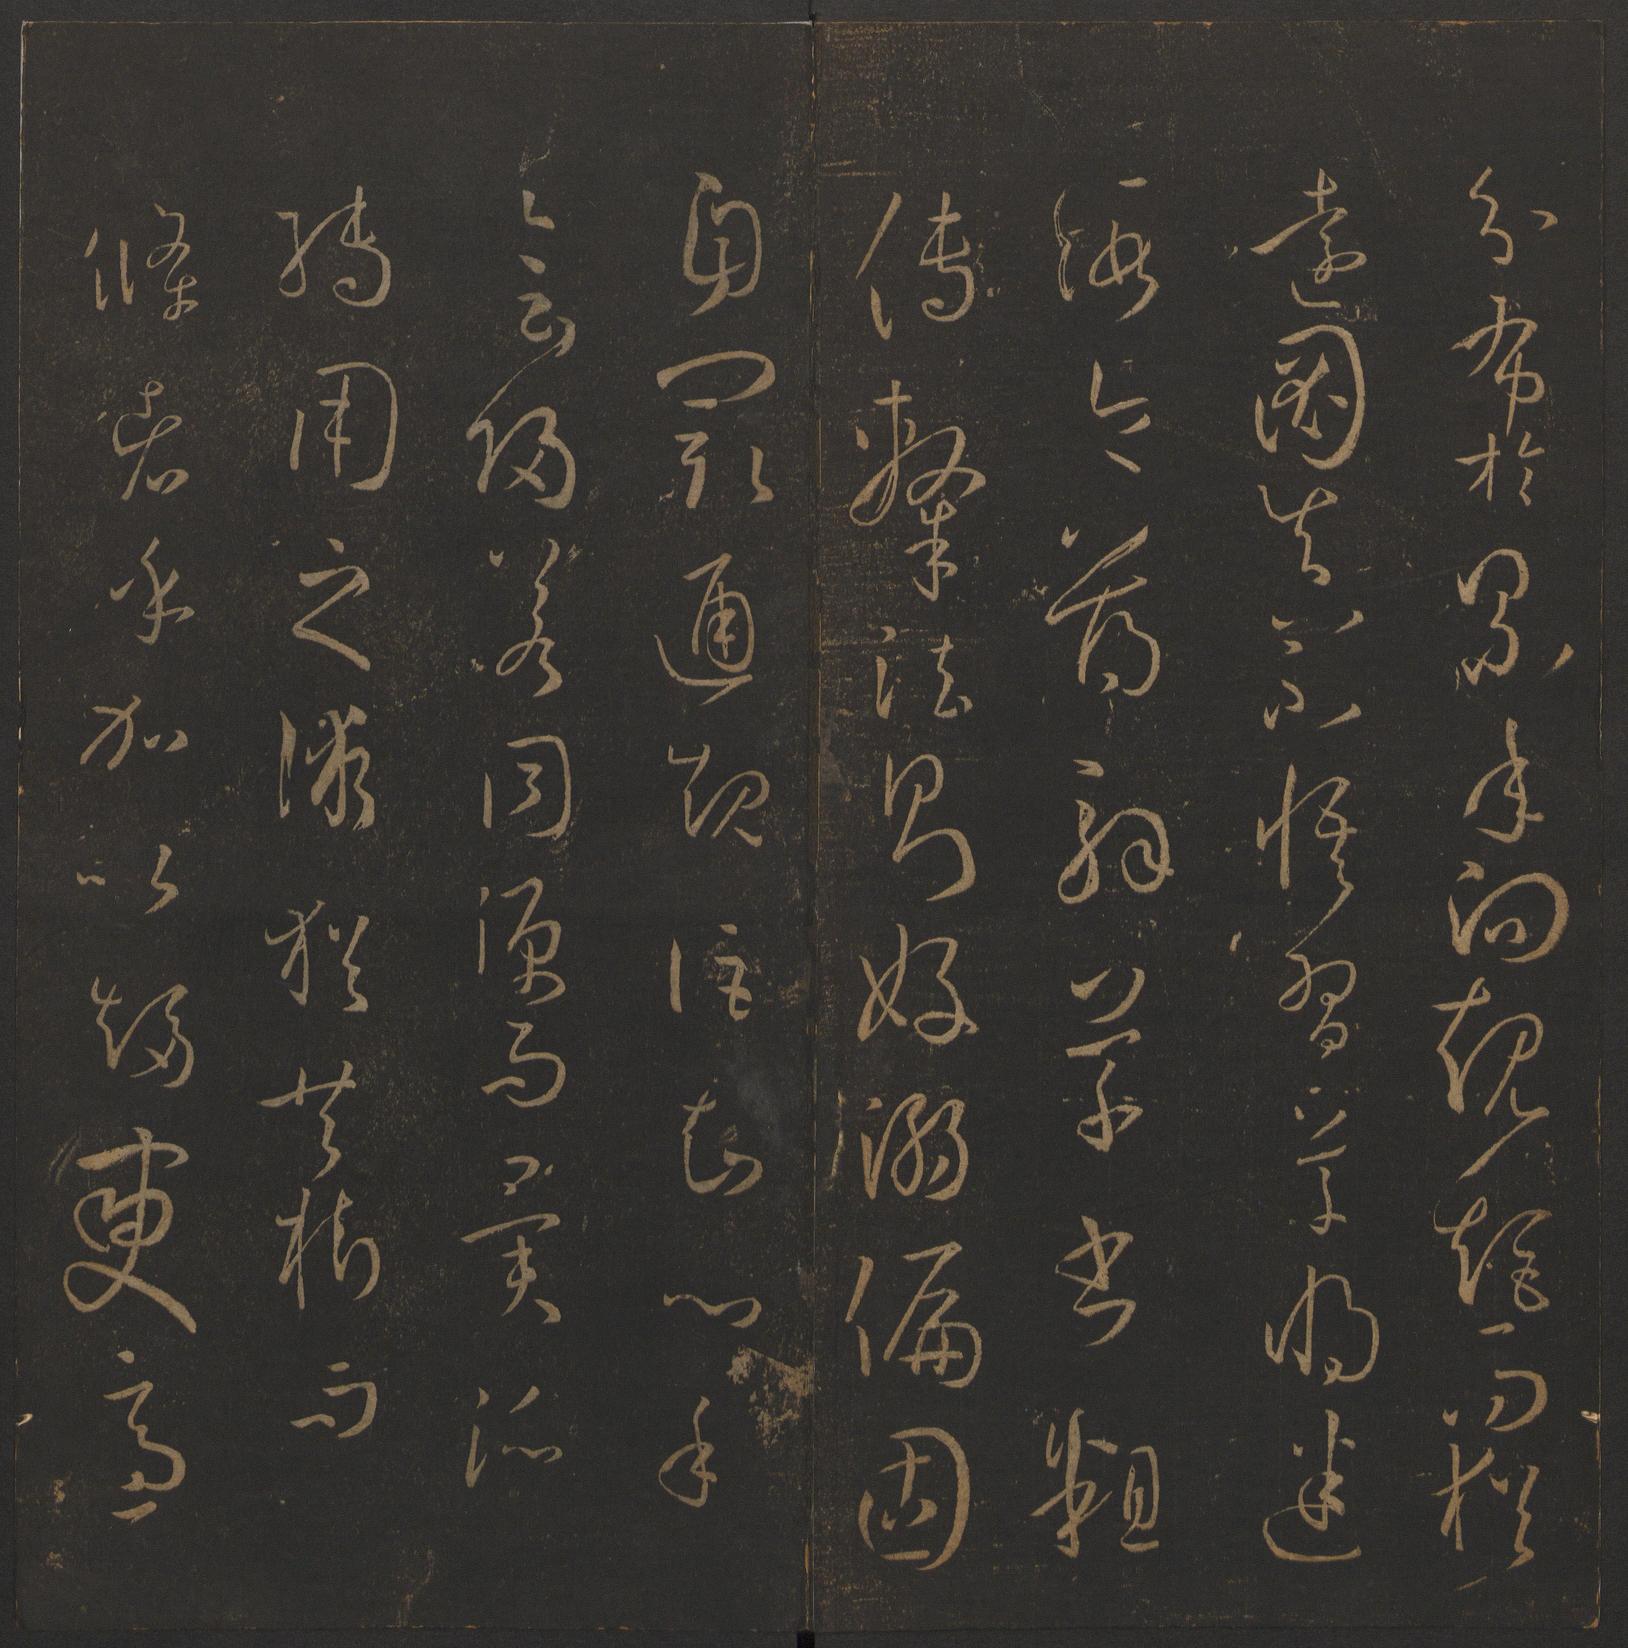 分布於累年向規矩而猶
遠圖真不悟習草將迷
假令薄解草書粗
傳隸法則好溺偏固
自閡通規詎知心手
會歸若同源而異派
轉用之術猶共樹而
條者乎加以趨變適